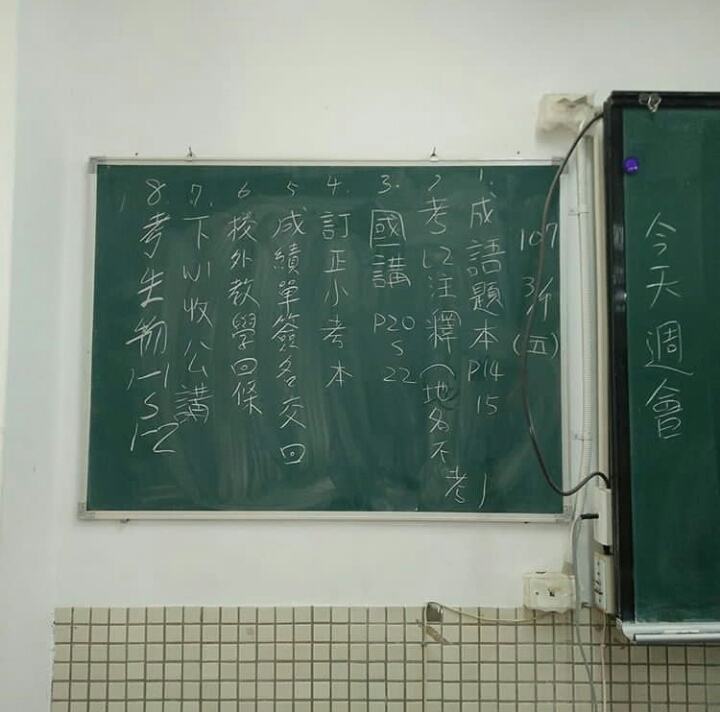 今天週會
107
3/9
(五)
1. 成語題本 P14 15
2 考L2注釋(地名不考)
3. 國講 P20~22
4. 訂正小考本
5 成績單簽名交回
6 校外教學回條
7. 下wl收公講
8 考生物1-1~1-2